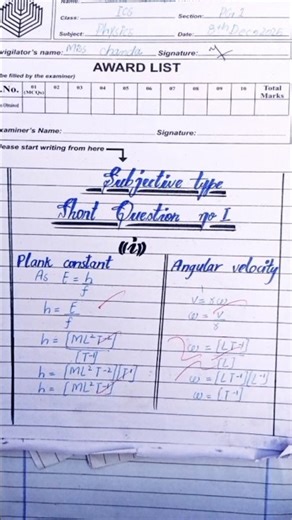 Name:
Class: ICS Section: PG-2
Subject: Physics Date: 8th Dec 2025
vigilator's name: Mrs Chanda Signature:
AWARD LIST
be filled by the examiner)
.No. 01 (MCQs) 02 03 04 05 06 07 08 09 10 Total Marks
s Obtained
xaminer's Name: Signature:
lease start writing from here
Subjective type
Short Question no I
((i))
Plank constant
As E = h/f
h = E/f
h = [ML²T⁻²]/[T⁻¹]
h = [ML²T⁻²][T¹]
h = [ML²T⁻¹]
Angular velocity
v = rω
ω = v/r
ω = [LT⁻¹]/[L]
ω = [LT⁻¹][L⁻¹]
ω = [T⁻¹]